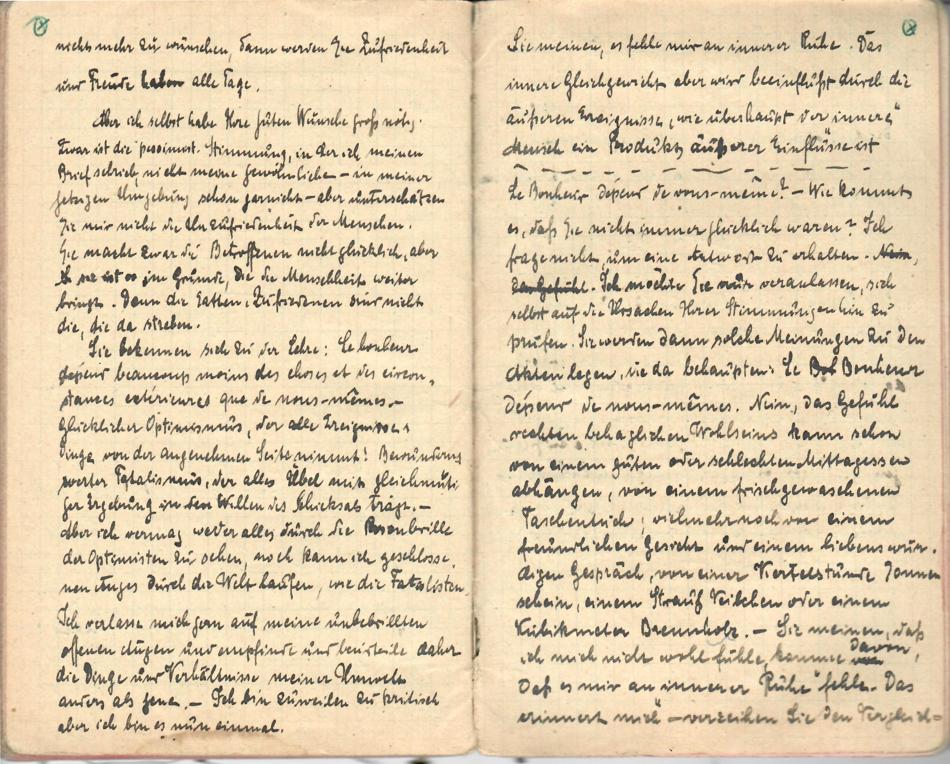 nichts mehr zu wünschen, dann werden Sie Zufriedenheit
und Freude haben alle Tage.
Aber ich selbst habe Ihre guten Wünsche groß nötig.
Zwar ist die pessimist. Stimmung, in der ich meinen
Brief schrieb, nicht meine gewöhnliche – in meiner
jetzigen Umgebung schon garnicht – aber unterschätzen
Sie mir nicht die Unzufriedenheit der Menschen.
Sie macht zwar die Betroffenen nicht glücklich, aber
sie ist es im Grunde, die die Menschheit weiter
bringt. Denn die Satten, Zufriedenen sind nicht
die, die da streben.
Sie bekennen sich zu der Lehre: Le bonheur
depend beaucoup moins des choses et des circon-
stances extérieures que de nous-mêmes. –
Glücklicher Optimismus, der alle Ereignisse u
Dinge von der angenehmen Seite nimmt! Bewunderns
werter Fatalismus, der alles Übel mit gleichmüti
ger Ergebung in den Willen des Schicksals trägt. –
Aber ich vermag weder alles durch die Rosenbrille
der Optimisten zu sehen, noch kann ich geschlosse-
nen Auges durch die Welt laufen, wie die Fatalisten.
Ich verlasse mich gern auf meine unbebrillten
offenen Augen und empfinde und beurteile daher
die Dinge und Verhältnisse meiner Umwelt
anders als jene. – Ich bin zuweilen zu kritisch
aber ich bin es nun einmal.
Sie meinen, es fehle mir an innerer Ruhe. Das
innere Gleichgewicht aber wird beeinflußt durch die
äußeren Ereignisse, wie überhaupt der „innere“
Mensch ein Produkt äußerer Einflüsse ist
Le Bonheur dépend de nous-même? – Wie kommt
es, daß Sie nicht immer glücklich waren? Ich
frage nicht, um eine Antwort zu erhalten. Nein,
das Gefühl. Ich möchte Sie nur veranlassen, sich
selbst auf die Ursachen Ihrer Stimmungen hin zu
prüfen. Sie werden dann solche Meinungen zu den
Akten legen, die da behaupten: Le Bonheur
dépend de nous-mêmes. Nein, das Gefühl
rechten behaglichen Wohlseins kann schon
von einem guten oder schlechten Mittagessen
abhängen, von einem frischgewaschenen
Taschentuch; vielmehr noch von einem
freundlichen Gesicht und einem liebenswür-
digen Gespräch, von einer Viertelstunde Sonnen
schein, einem Strauß Veilchen oder einem
Kubikmeter Brennholz. – Sie meinen, daß
ich mich nicht wohl fühle, komme davon,
daß es mir an „innerer Ruhe“ fehle. Das
erinnert mich – verzeihen Sie den Vergleich –